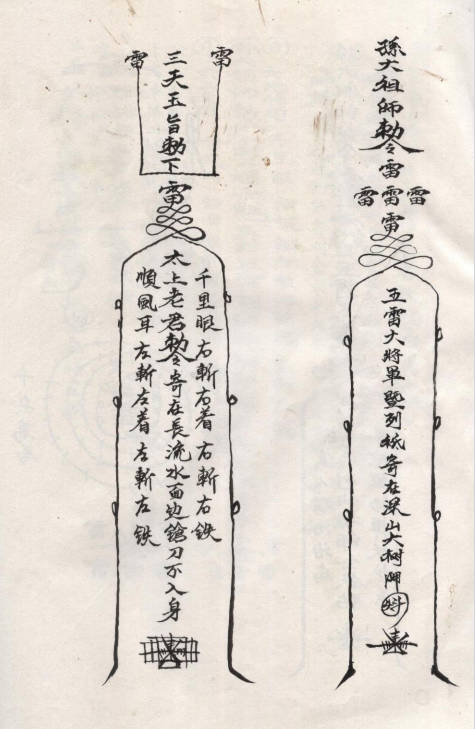 孫大祖師勅令雷
雷雷雷
雷
五雷大將軍暨列祗寄在深山大樹脚
雷 雷
三天玉旨勅下
雷
千里眼右斬右着右斬右鉄
太上老君勅令寄在長流水面边鎗刀不入身
順風耳左斬左着左斬左鉄